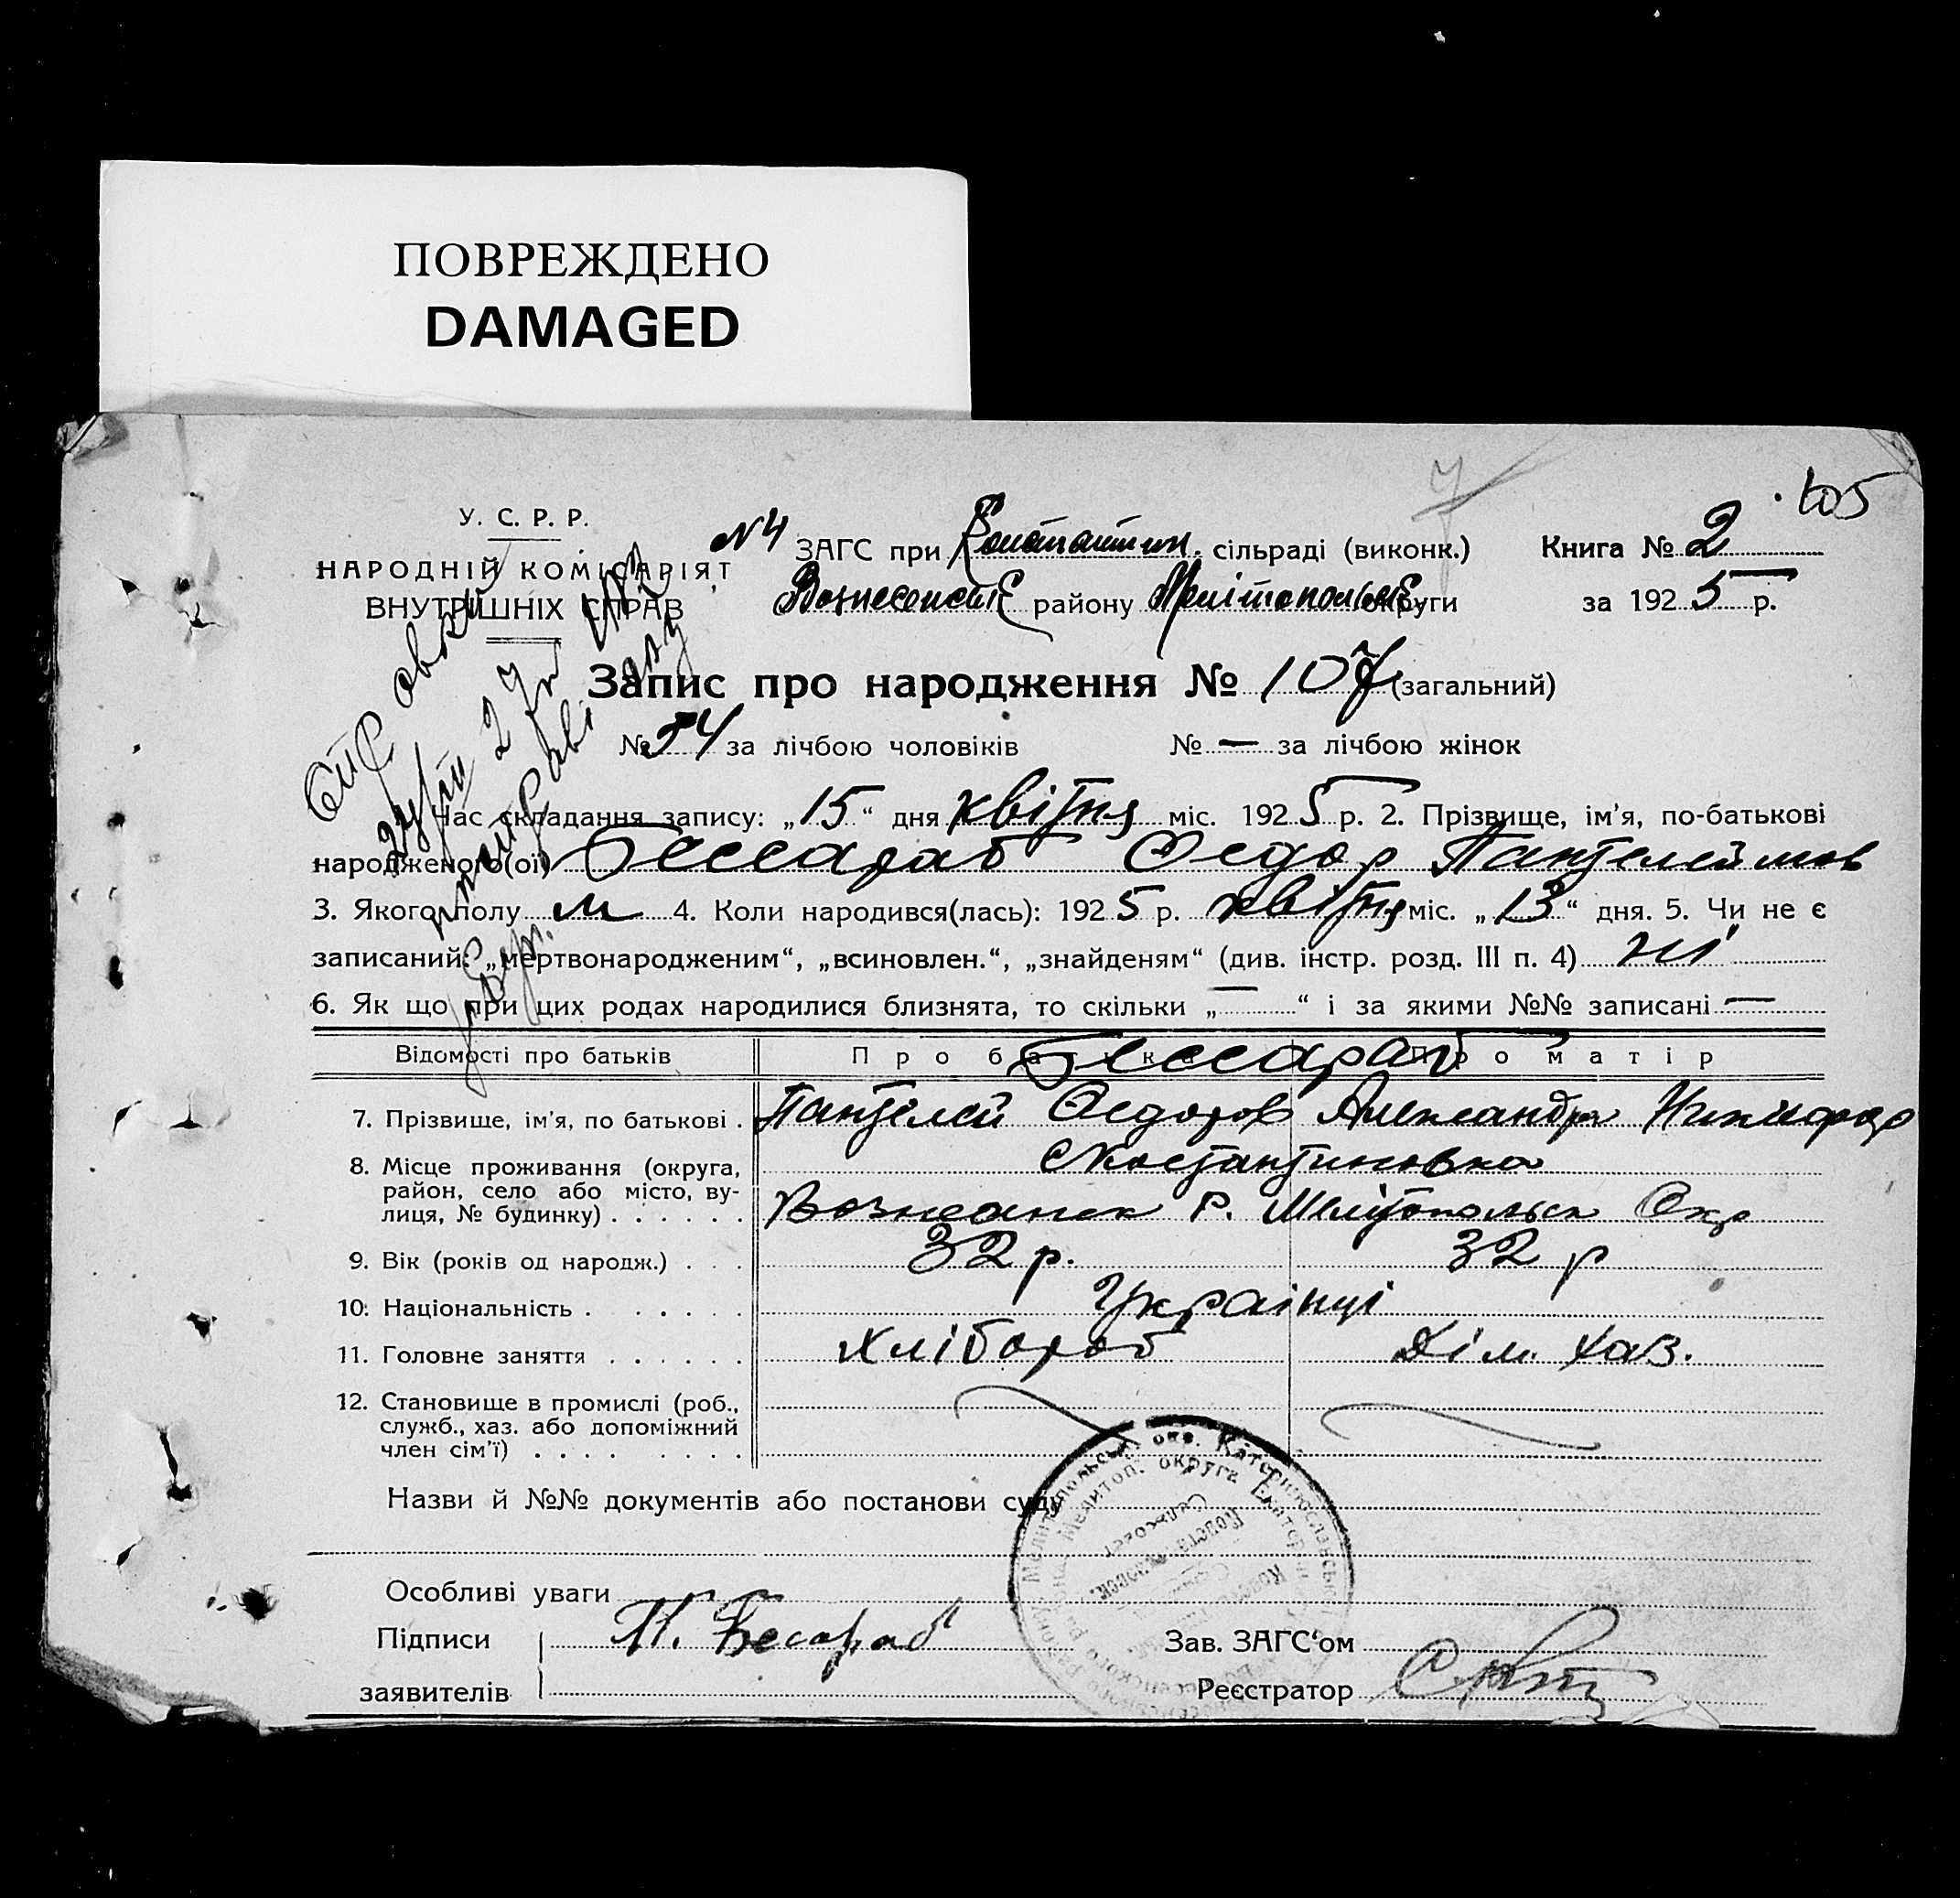 ПОВРЕЖДЕНО
DAMAGED
105
У. С. Р. Р.
НАРОДНІЙ КОМІСАРІЯТ
ВНУТРІШНІХ СПРАВ
N4 ЗАГС при Константин. сільраді (виконк.) Книга № 2
району округи за 1925 р.
Запис про народження № 107 (загальний)
№ 54 за лічбою чоловіків № — за лічбою жінок
Час складання запису: „15“ дня квітня міс. 1925 р. 2. Прізвище, ім'я, по-батькові
народженого(ої) Бессараб Федор Пантелеймов
3. Якого полу м 4. Коли народився(лась): 1925 р. квітня міс. „13“ дня. 5. Чи не є
записаний: „мертвонародженим“, „всиновлен.“, „знайденям“ (див. інстр. розд. III п. 4) ні
6. Як що при цих родах народилися близнята, то скільки „—“ і за якими №№ записані —
Відомості про батьків Про батька Про матір
Бессараб
7. Прізвище, ім'я, по батькові . Пантелей Федоров Александра
8. Місце проживання (округа,
район, село або місто, ву-
лиця, № будинку) . . . . . .
с Костантиновка
Р. Мелітопольск Окр
9. Вік (років од народж.) . . . 32 р. 32 р
10. Національність . . . . . Українці
11. Головне заняття . . . . . . Хлібороб Дім. хаз.
12. Становище в промислі (роб.,
служб., хаз. або допоміжний
член сім'ї) . . . . . . . . .
Назви й №№ документів або постанови суду
Особливі уваги
Підписи П. Бесараб Зав. ЗАГС'ом
заявителів Реєстратор